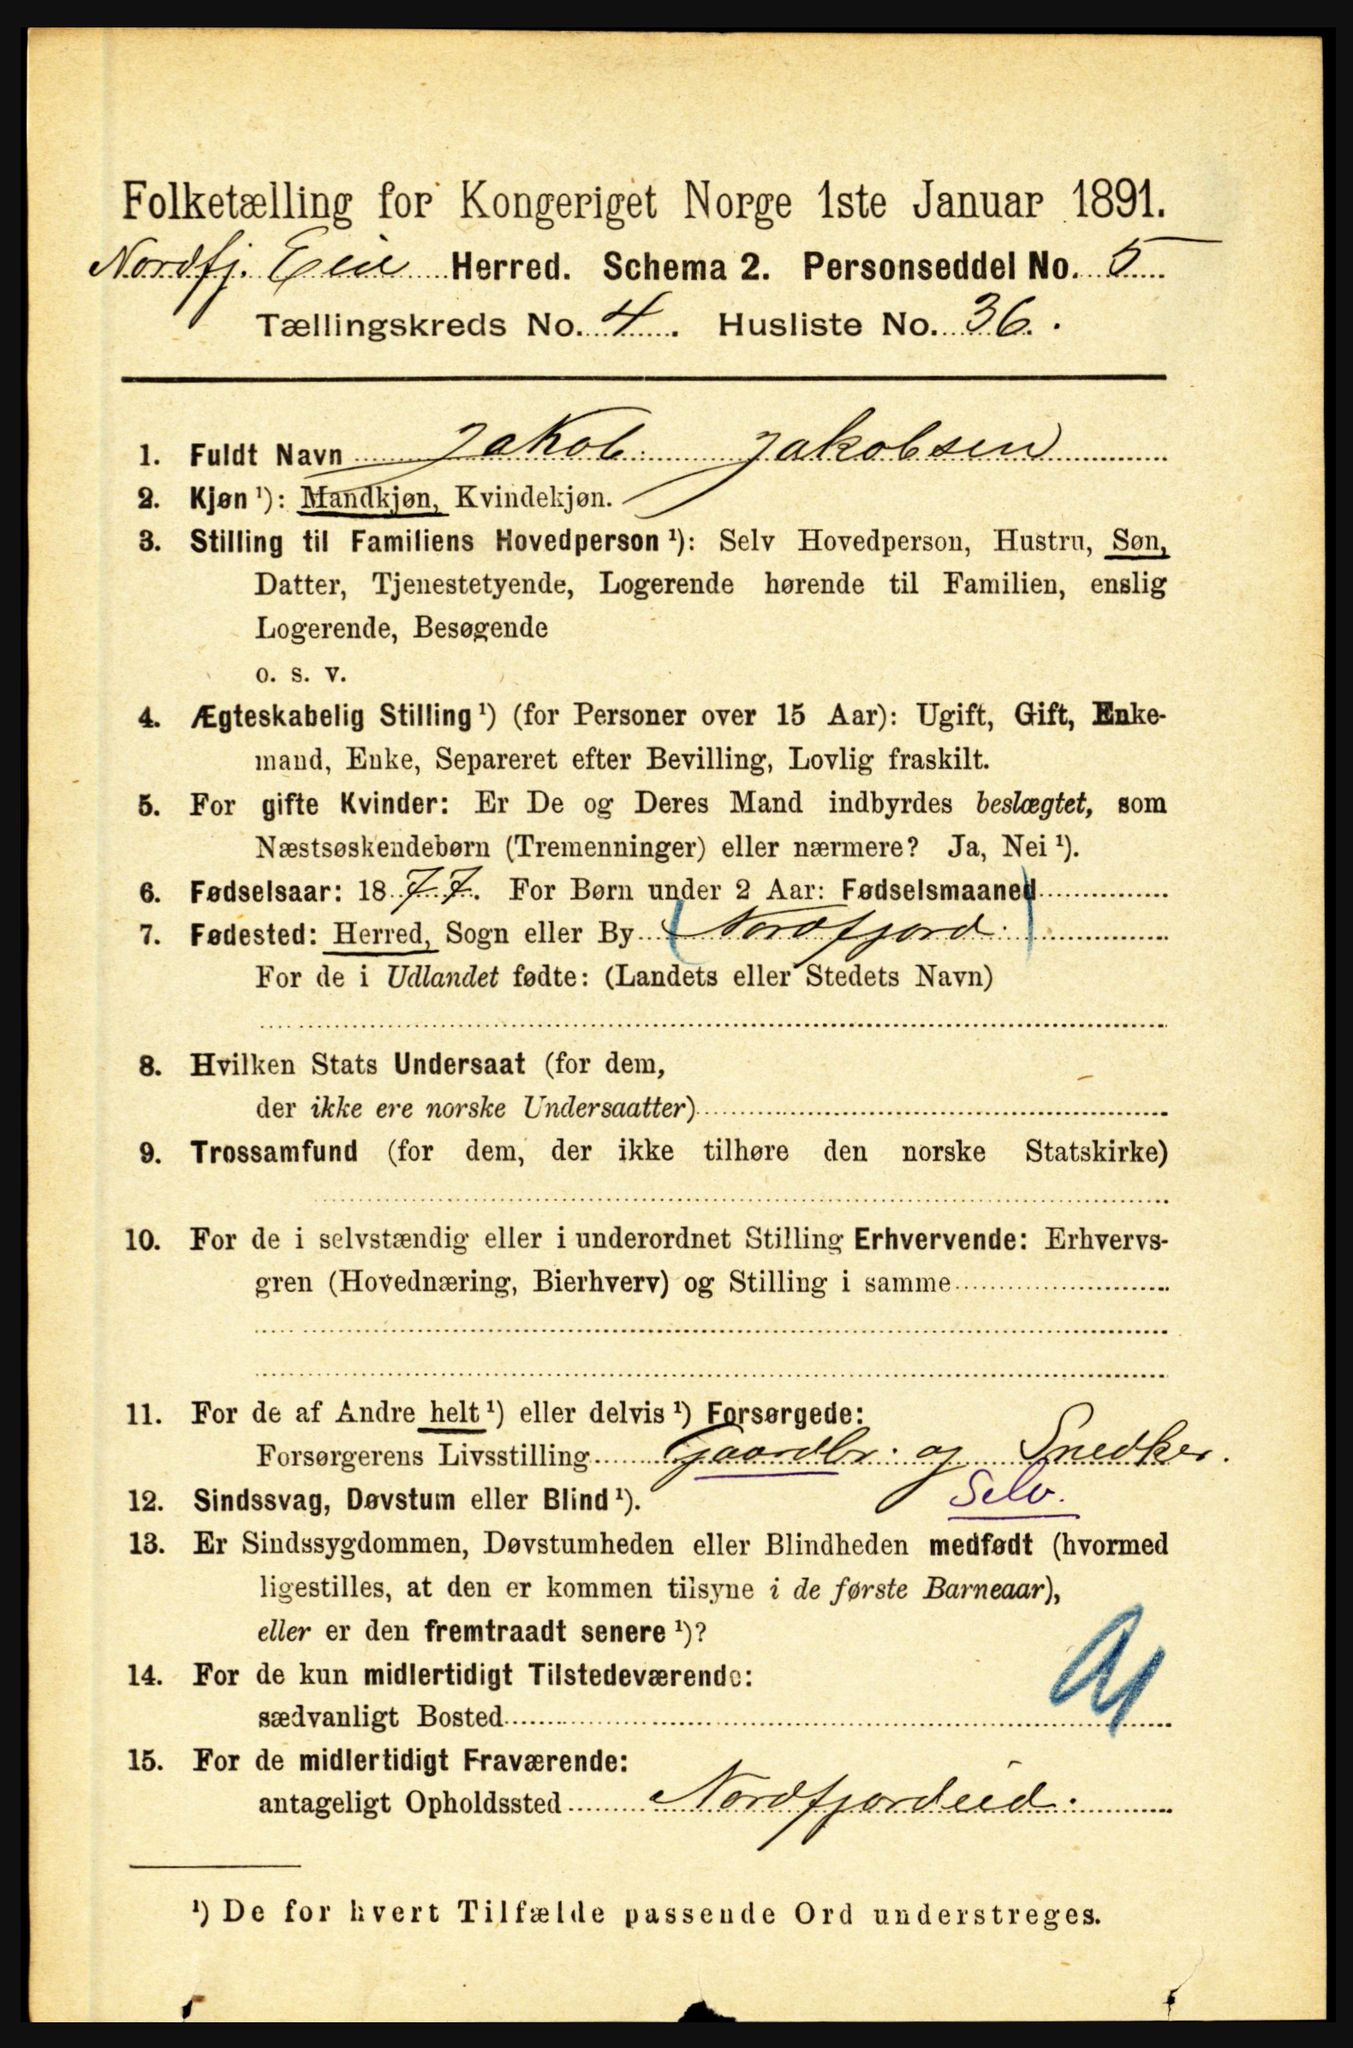 Folketælling for Kongeriget Norge 1ste Januar 1891.
Nordfj. Eid Herred. Schema 2. Personseddel No. 5
Tællingskreds No. 4. Husliste No. 36.
1. Fuldt Navn Jakob Jakobsen
2. Kjøn ¹): Mandkjøn, Kvindekjøn.
3. Stilling til Familiens Hovedperson ¹): Selv Hovedperson, Hustru, Søn,
Datter, Tjenestetyende, Logerende hørende til Familien, enslig
Logerende, Besøgende
o. s. v.
4. Ægteskabelig Stilling ¹) (for Personer over 15 Aar): Ugift, Gift, Enke-
mand, Enke, Separeret efter Bevilling, Lovlig fraskilt.
5. For gifte Kvinder: Er De og Deres Mand indbyrdes beslægtet, som
Næstsøskendebørn (Tremenninger) eller nærmere? Ja, Nei ¹).
6. Fødselsaar: 1877. For Børn under 2 Aar: Fødselsmaaned
7. Fødested: Herred, Sogn eller By (Nordfjord.)
For de i Udlandet fødte: (Landets eller Stedets Navn)
8. Hvilken Stats Undersaat (for dem,
der ikke ere norske Undersaatter)
9. Trossamfund (for dem, der ikke tilhøre den norske Statskirke)
10. For de i selvstændig eller i underordnet Stilling Erhvervende: Erhvervs-
gren (Hovednæring, Bierhverv) og Stilling i samme
11. For de af Andre helt ¹) eller delvis ¹) Forsørgede:
Forsørgerens Livsstilling Gaardbr. og Snedker.
12. Sindssvag, Døvstum eller Blind ¹). Selv.
13. Er Sindssygdommen, Døvstumheden eller Blindheden medfødt (hvormed
ligestilles, at den er kommen tilsyne i de første Barneaar),
eller er den fremtraadt senere ¹)?
14. For de kun midlertidigt Tilstedeværende:
sædvanligt Bosted
15. For de midlertidigt Fraværende:
antageligt Opholdssted Nordfjordeid.
¹) De for hvert Tilfælde passende Ord understreges.